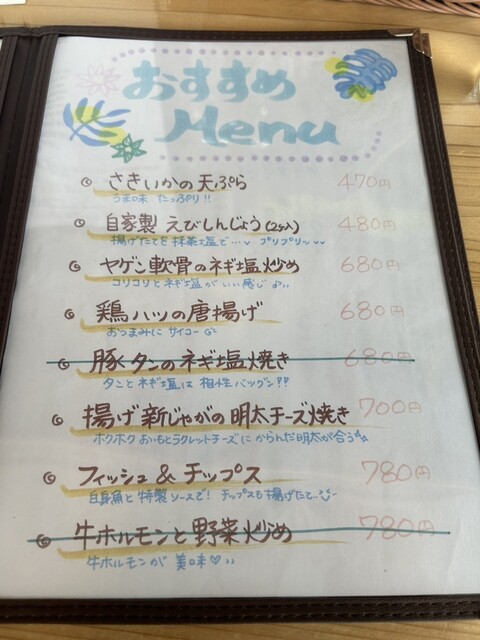 おすすめ
Menu
さきいかの天ぷら 470円
うま味 たっぷり!!
自家製 えびしんじょう(2ケ入) 480円
揚げたてを 抹茶塩で… プリプリ〜
ヤゲン軟骨のネギ塩炒め 680円
コリコリとネギ塩がいい感じ
鶏ハツの唐揚げ 680円
おつまみに サイコー
豚タンのネギ塩焼き 680円
タンと ネギ塩は 相性バツグン!!
揚げ新じゃがの明太チーズ焼き 700円
ホクホクおいもとラクレットチーズに からんだ明太が合う
フィッシュ & チップス 780円
白身魚と 特製ソースで! チップスも揚げたて
牛ホルモンと野菜炒め 780円
牛ホルモンが 美味♡